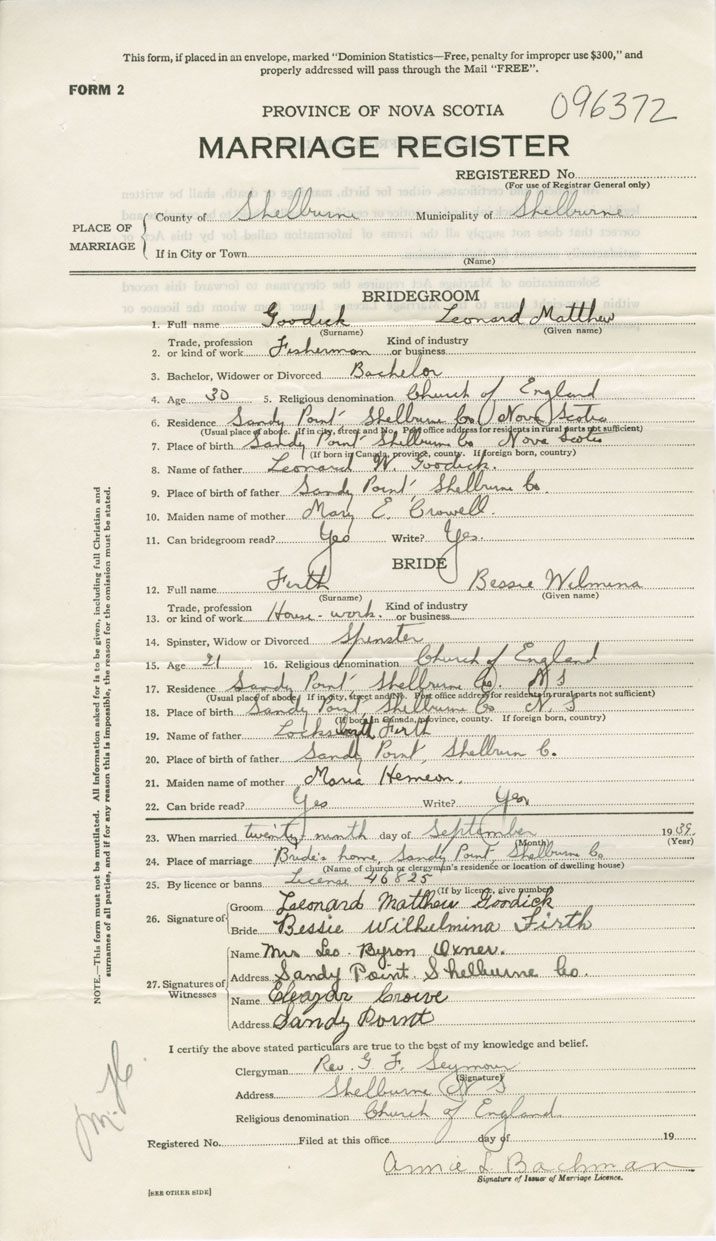 This form, if placed in an envelope, marked "Dominion Statistics—Free, penalty for improper use $300," and
properly addressed will pass through the Mail "FREE".
FORM 2
096372
PROVINCE OF NOVA SCOTIA
MARRIAGE REGISTER
REGISTERED No.
(For use of Registrar General only)
PLACE OF MARRIAGE
County of Shelburne Municipality of Shelburne
If in City or Town
(Name)
BRIDEGROOM
1. Full name Goodick Leonard Matthew
(Surname) (Given name)
2. Trade, profession or kind of work Fisherman Kind of industry or business
3. Bachelor, Widower or Divorced Bachelor
4. Age 30 5. Religious denomination Church of England
6. Residence Sandy Point Shelburne Co Nova Scotia
(Usual place of abode. If in city, street and No. Post office address for residents in rural parts not sufficient)
7. Place of birth Sandy Point Shelburne Co Nova Scotia
(If born in Canada, province, county. If foreign born, country)
8. Name of father Leonard W. Goodick.
9. Place of birth of father Sandy Point Shelburne Co.
10. Maiden name of mother Mary E. Crowell.
11. Can bridegroom read? Yes Write? Yes.
BRIDE
12. Full name Firth Bessie Wilmina
(Surname) (Given name)
13. Trade, profession or kind of work House-work. Kind of industry or business
14. Spinster, Widow or Divorced Spinster
15. Age 21 16. Religious denomination Church of England
17. Residence Sandy Point Shelburne Co. N S
(Usual place of abode. If in city, street and No. Post office address for residents in rural parts not sufficient)
18. Place of birth Sandy Point, Shelburne Co N. S
(If born in Canada, province, county. If foreign born, country)
19. Name of father Firth
20. Place of birth of father Sandy Point, Shelburn C.
21. Maiden name of mother Maria Hemeon.
22. Can bride read? Yes Write? Yes
23. When married twenty ninth day of September 1939
(Month) (Year)
24. Place of marriage Bride's home, Sandy Point, Shelburne Co
(Name of church or clergyman's residence or location of dwelling house)
25. By licence or banns License 46825
(If by licence, give number)
26. Signature of
Groom Leonard Matthew Goodick
Bride Bessie Wilhelmina Firth
27. Signatures of Witnesses
Name Mrs Leo Byron Oxner.
Address Sandy Point Shelburne Co.
Name Eleazar Crowe
Address Sandy Point
I certify the above stated particulars are true to the best of my knowledge and belief.
Clergyman Rev. G F. Seymour
(Signature)
Address Shelburne N S
Religious denomination Church of England
Registered No. Filed at this office day of 19
Annie L. Bachman
Signature of Issuer of Marriage Licence.
[SEE OTHER SIDE]
NOTE.—This form must not be mutilated. All information asked for is to be given, including full Christian and
surnames of all parties, and if for any reason this is impossible, the reason for the omission must be stated.